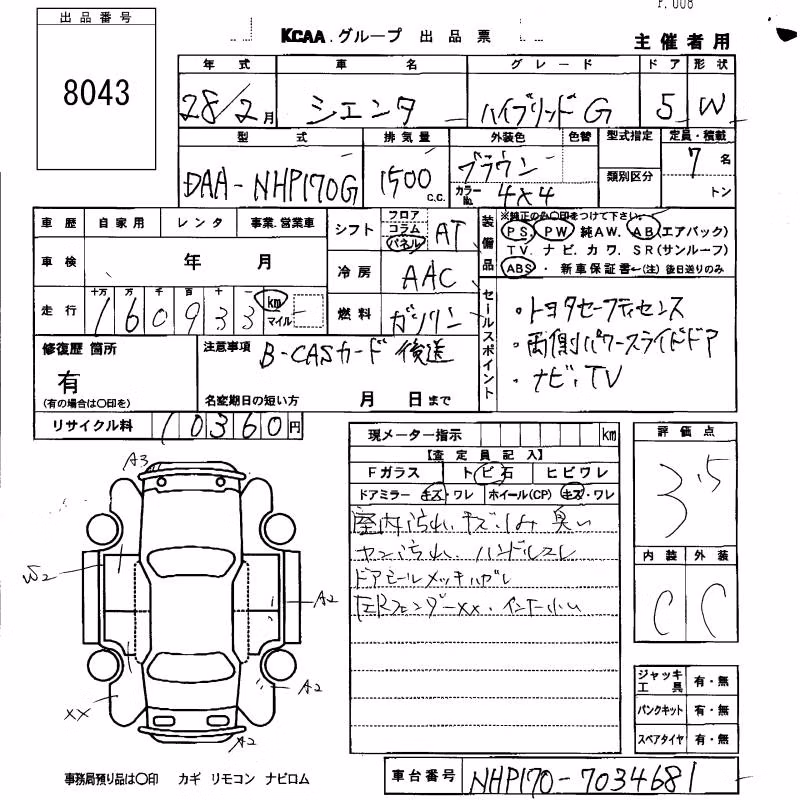 P.008
出品番号
8043
KCAA.グループ 出品票
主催者用
年式 車名 グレード ドア 形状
28/2月 シエンタ ハイブリッドG 5 W
型式 排気量 外装色 色替 型式指定 定員・積載
DAA-NHP170G 1500 C.C. ブラウン 7名
カラーNo. 4X4 類別区分 トン
車歴 自家用 レンタ 事業.営業車
シフト フロア コラム パネル AT
車検 年 月
冷房 AAC
走行 十万 万 千 百 十 一 km マイル
160933
燃料 ガソリン
装備品
※純正のみ○印をつけて下さい。
PS. PW 純AW. AB(エアバック)
TV. ナビ. カワ. SR(サンルーフ)
ABS・新車保証書←(注)後日送りのみ
セールスポイント
・トヨタセーフティセンス
・両側パワースライドドア
・ナビ、TV
修復歴 箇所
有
(有の場合は○印を)
注意事項 B-CASカード 後送
名変期日の短い方 月 日まで
リサイクル料 10360円
現メーター指示 km
【査定員記入】
Fガラス トビ石 ヒビワレ
ドアミラー キズ・ワレ ホイール(CP) キズ・ワレ
室内汚れ、キズ、シミ 臭い
ハンドルスレ
ドアモールメッキハガレ
評価点
3.5
内装 外装
C C
A3
W2
A2
A2
XX
A2
ジャッキ工具 有・無
パンクキット 有・無
スペアタイヤ 有・無
事務局預り品は○印 カギ リモコン ナビロム
車台番号 NHP170-7034681